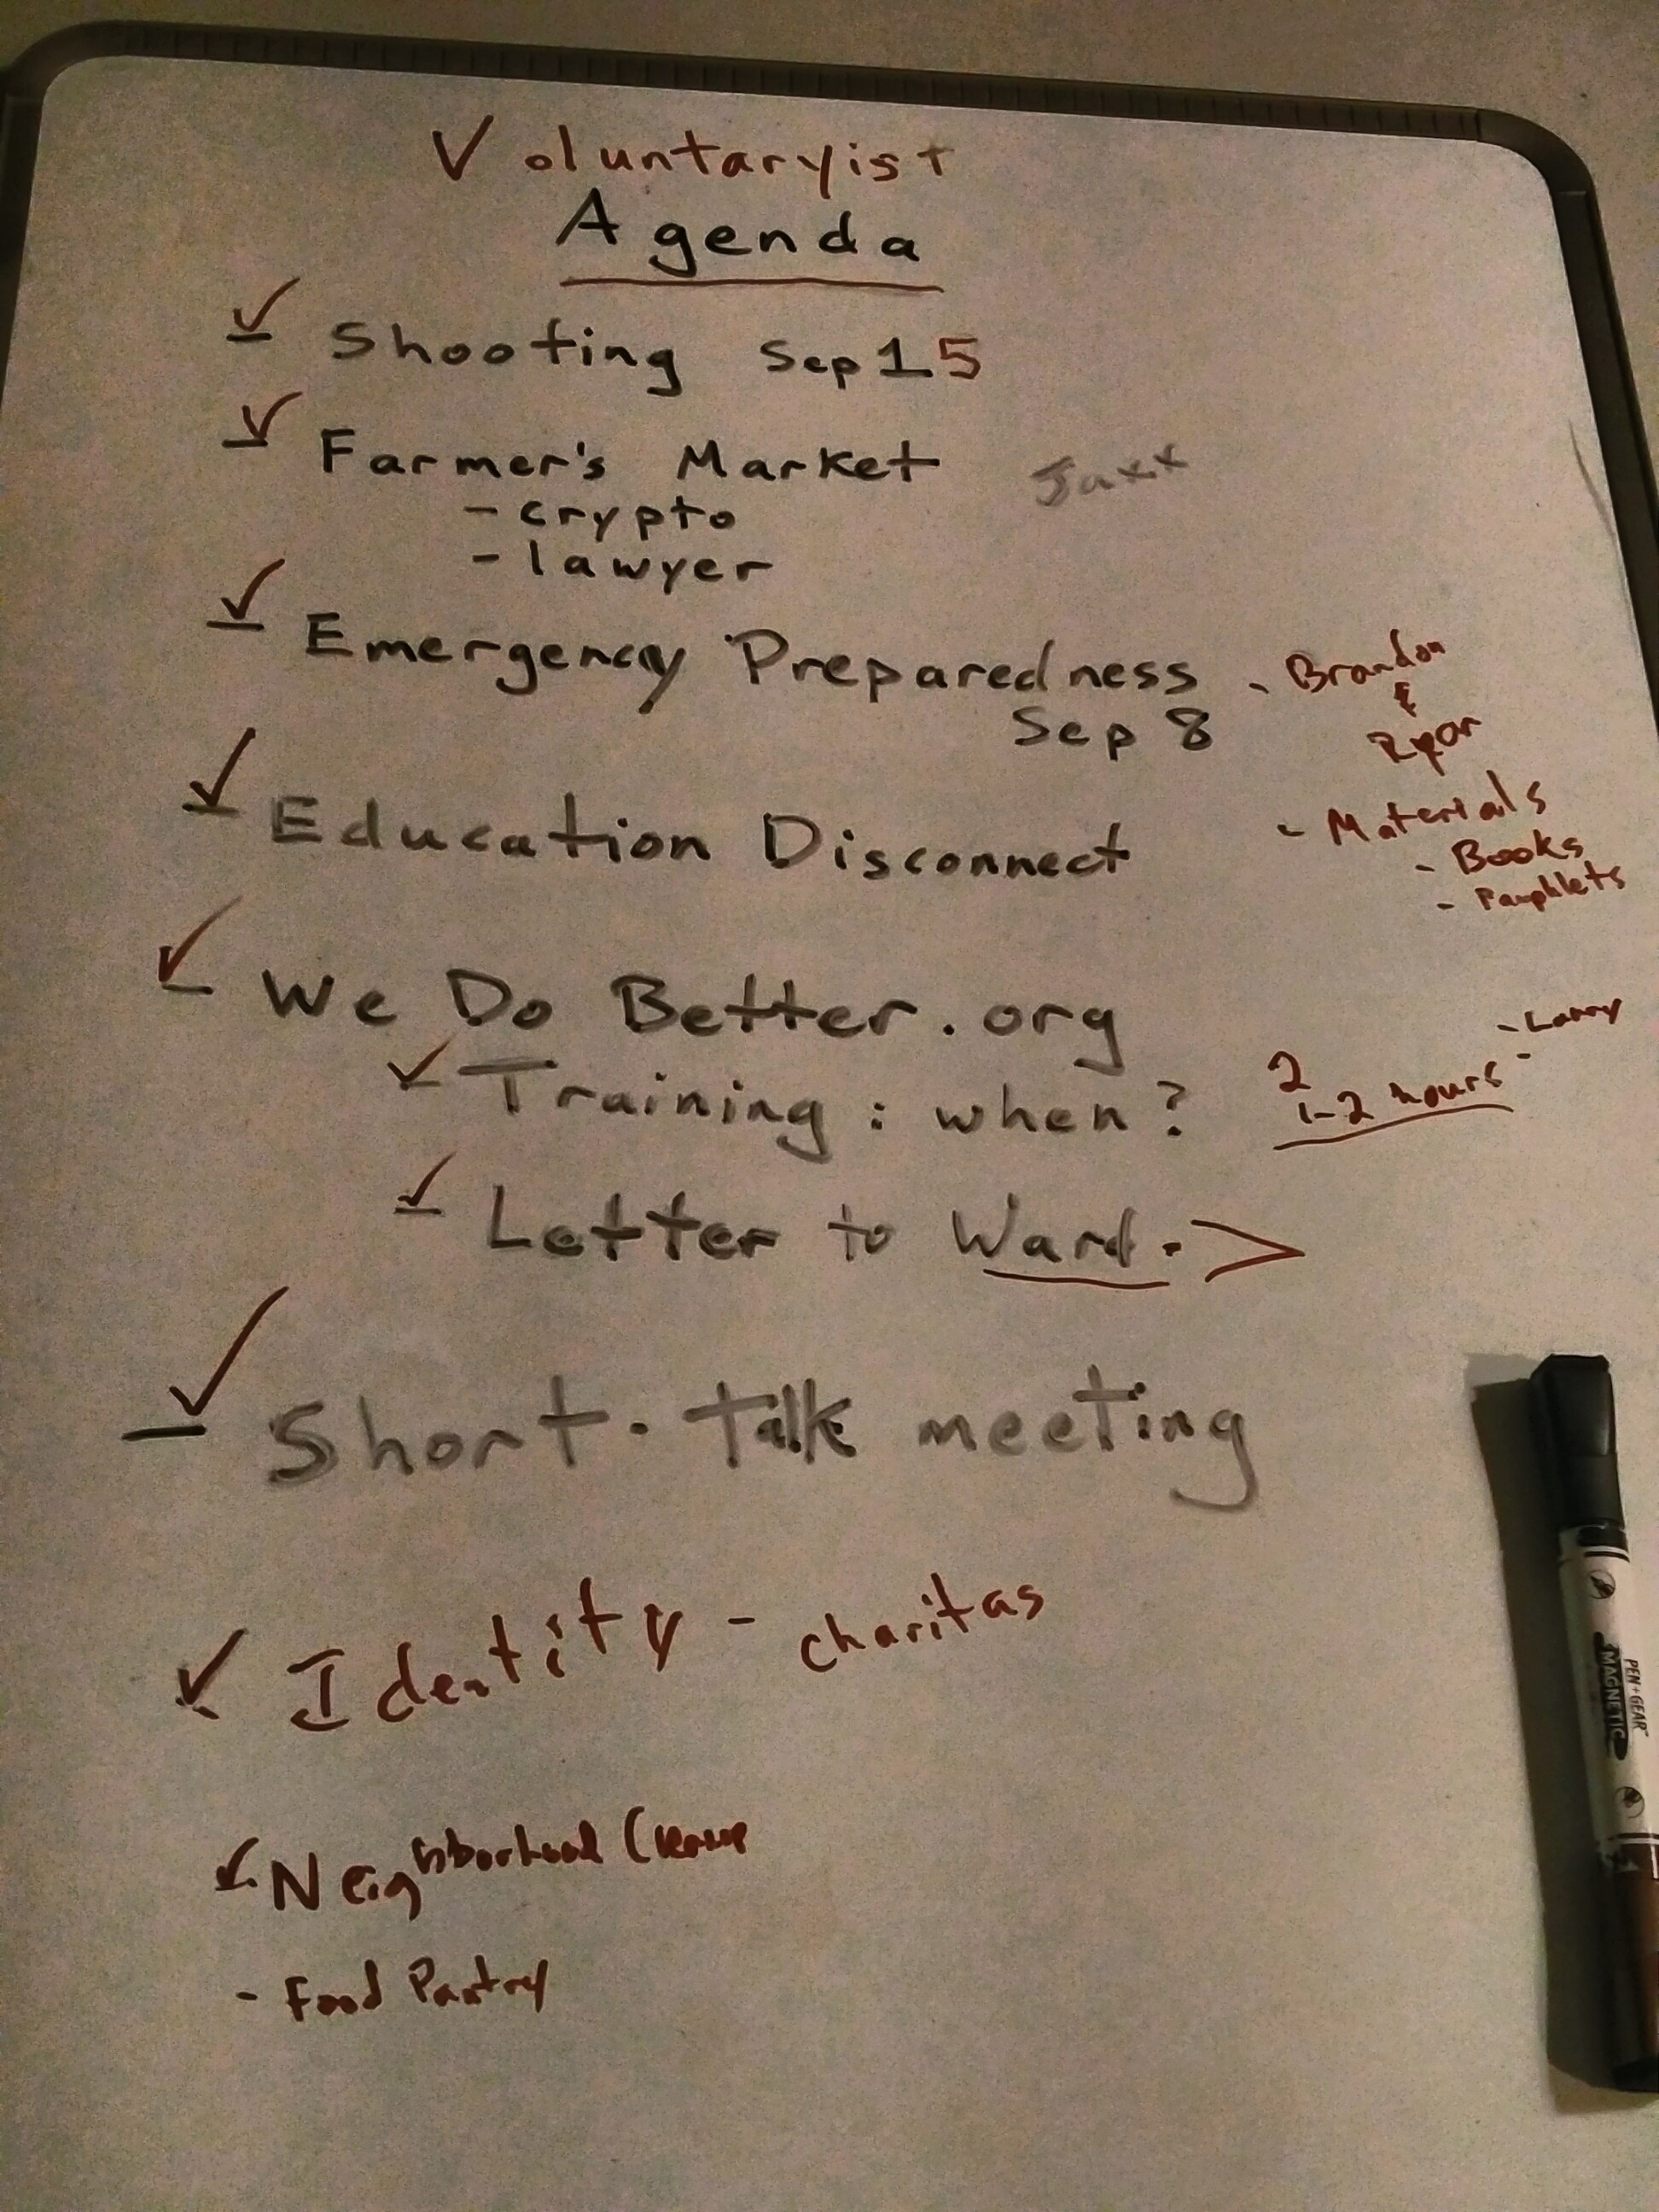 Voluntaryist
Agenda
✓ Shooting Sep 15
✓ Farmer's Market Jaxx
- crypto
- lawyer
✓ Emergency Preparedness - Brandon
&
Ryan
Sep 8
✓ Education Disconnect - Materials
- Books
- Pamphlets
✓ We Do Better.org
- Larry
✓ Training: when? 2
1-2 hours -
✓ Letter to Ward. >
✓ Short-talk meeting
✓ Identity - charitas
✓ Neighborhood
- Food Pantry
PEN+GEAR™
MAGNETIC